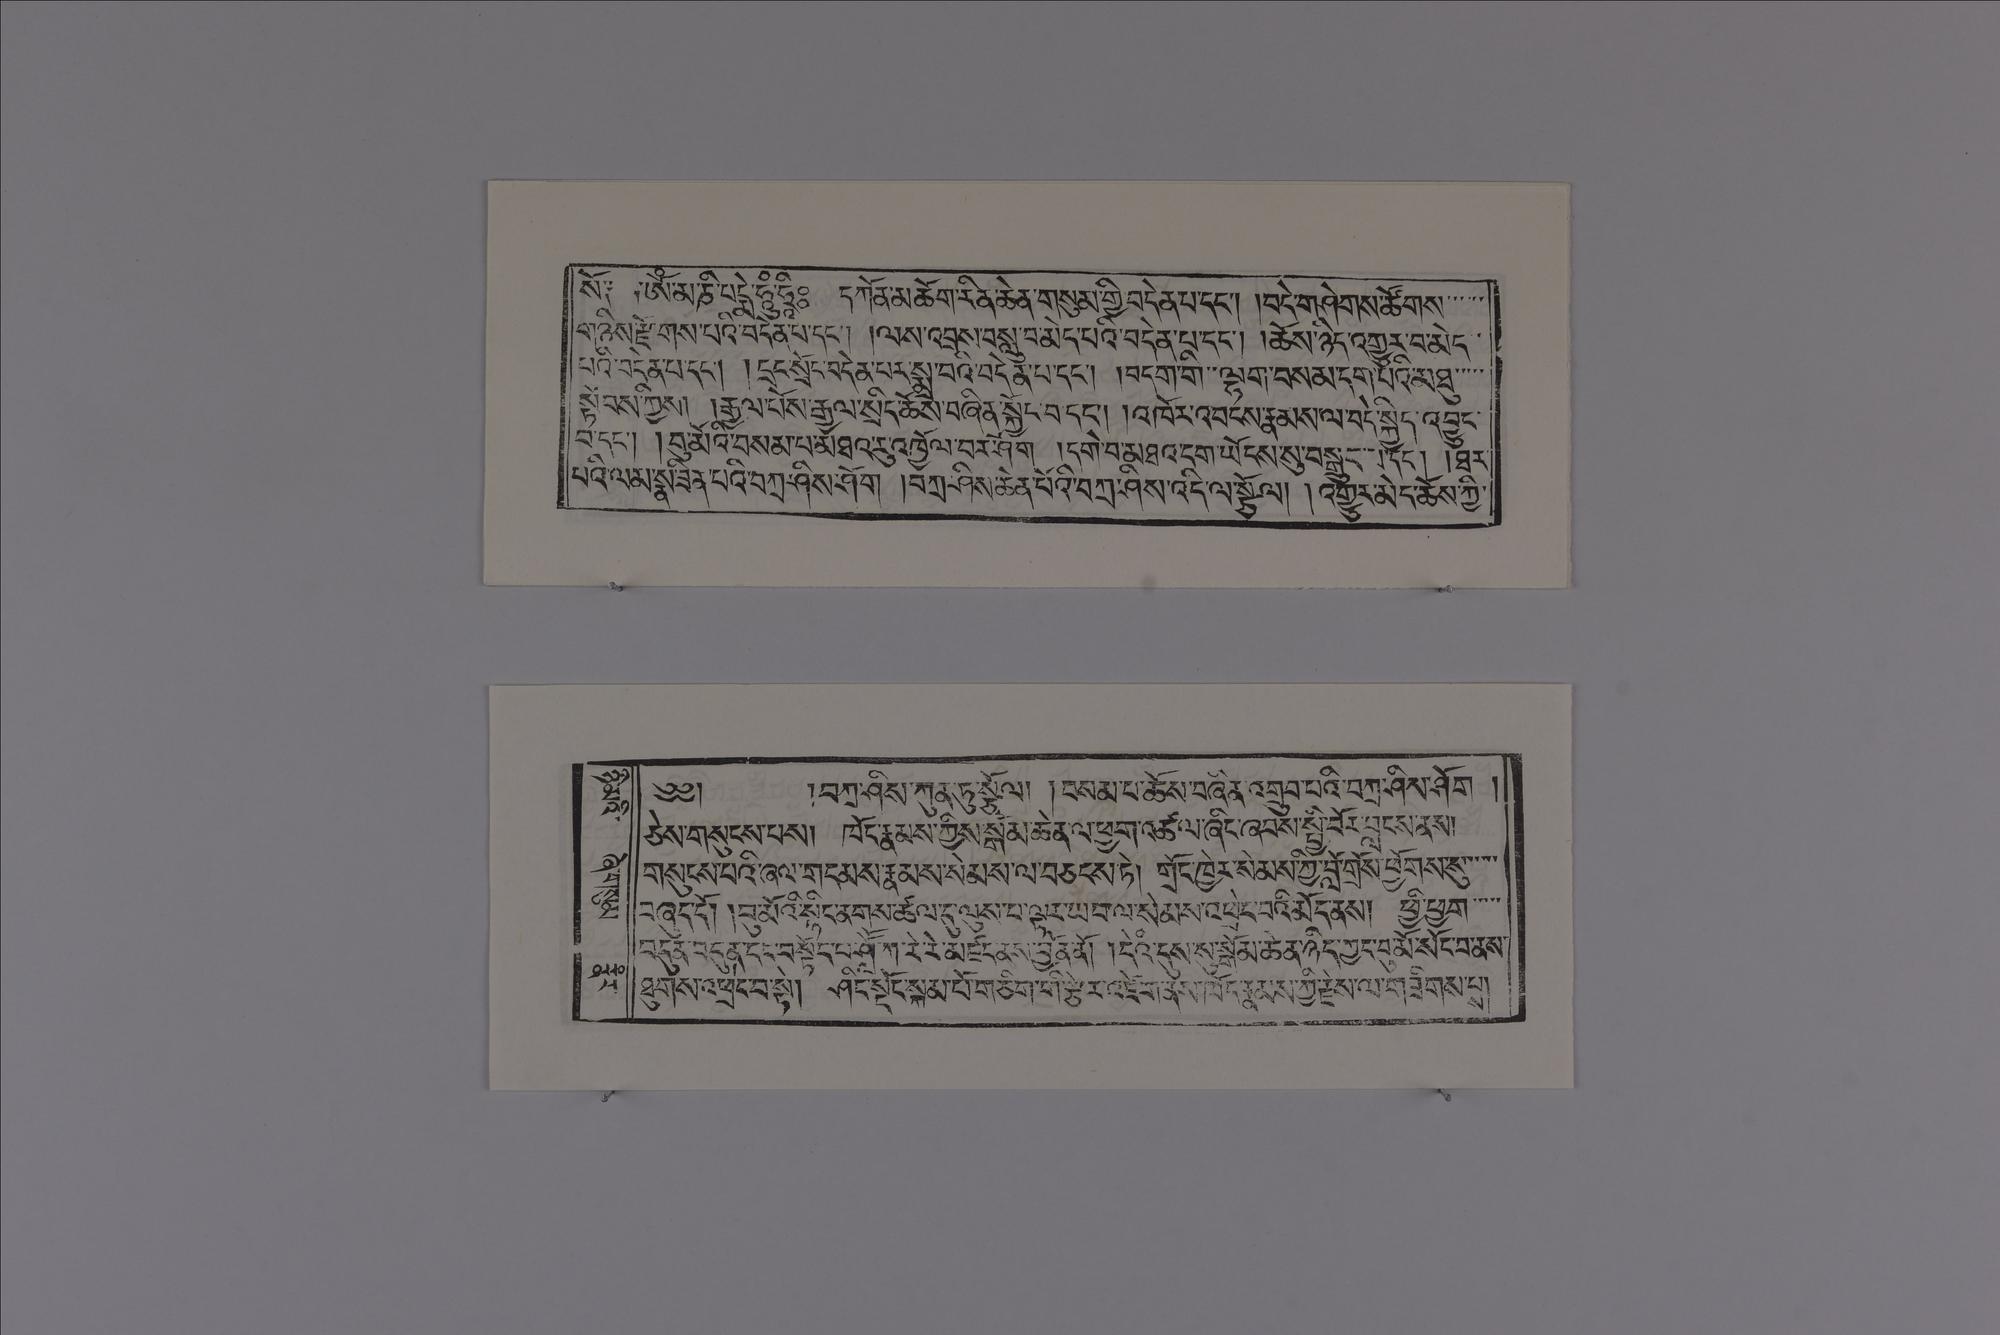 སོ༔ །ཨོཾ་མ་ཎི་པདྨེ་ཧཱུྃ་ཧྲཱིཿ དཀོན་མཆོག་རིན་ཆེན་གསུམ་གྱི་བདེན་པ་དང་། །བདེ་གཤེགས་ཚོགས་
གཉིས་རྫོགས་པའི་བདེན་པ་དང་། །ལས་འབྲས་བསླུ་བ་མེད་པའི་བདེན་པ་དང་། །ཆོས་ཉིད་འགྱུར་བ་མེད་
པའི་བདེན་པ་དང་། །དྲང་སྲོང་བདེན་པར་སྨྲ་བའི་བདེན་པ་དང་། །བདག་གི་ལྷག་བསམ་དག་པའི་མཐུ་
སྟོབས་ཀྱིས། །རྒྱལ་པོས་རྒྱལ་སྲིད་ཆོས་བཞིན་སྐྱོང་བ་དང་། །འཁོར་འབངས་རྣམས་ལ་བདེ་སྐྱིད་འབྱུང་
བ་དང་། །བུ་མོའི་བསམ་པ་མཐའ་རུ་འཁྱོལ་བར་ཤོག །དགེ་བ་མཐའ་དག་ཡོངས་སུ་བསྒྲུང་ །དང་། །ཐར་
པའི་ལམ་སྣ་ཟིན་པའི་བཀྲ་ཤིས་ཤོག །བཀྲ་ཤིས་ཆེན་པོའི་བཀྲ་ཤིས་འདི་ལ་སྩོལ། །འགྱུར་མེད་ཆོས་ཀྱི་
༄༅། །བཀྲ་ཤིས་ཀུན་ཏུ་སྩོལ། །བསམ་པ་ཆོས་བཞིན་འགྲུབ་པའི་བཀྲ་ཤིས་ཤོག །
ཅེས་གསུངས་པས། ཁོང་རྣམས་ཀྱིས་སྒོམ་ཆེན་ལ་ཕྱག་འཚལ་ཞིང་ཞབས་སྤྱི་བོར་བླངས་ནས།
གསུངས་པའི་ཞལ་གདམས་རྣམས་སེམས་ལ་བཅངས་ཏེ། གྲོང་ཁྱེར་སེམས་ཀྱི་བློ་གྲོས་ཕྱོགས་སུ་
བཞུད་དོ། །བུ་མོའི་སྙིང་ནགས་ཚལ་དུ་ལུས་པ་ལྟར་ཡབ་ལ་སེམས་འཕྲེང་བའི་མོད་ནས། ཕྱི་ཕྱག་
བདུན་བདུན་དང་བསྟོད་པ་ཤླཽ་ཀ་རེ་རེ་མཛད་ནས་བྱོན་ནོ། །དེའི་དུས་སུ་སྒོམ་ཆེན་ཉིད་ཀྱང་བུ་མོ་སོང་བ་ནས་
ཐུགས་འཕྲེང་བ་སྟེ། ཤིང་སྡོང་སྐམ་པོ་གཅིག་གི་རྩེར་འཛེགས་ནས་ཁོང་རྣམས་ཀྱི་རྗེས་ལ་གཟིགས་པ།